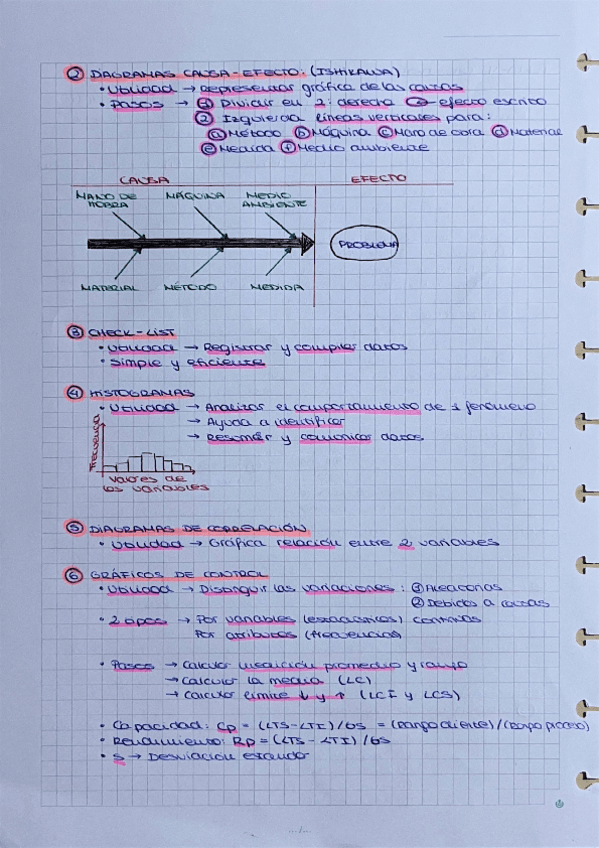 ② DIAGRAMAS CAUSA-EFECTO: (ISHIKAWA)
• Utilidad → Representar gráfica de las causas
• Pasos → ① Dividir en 2: derecha → efecto escrito
② Izquierda líneas verticales para:
ⓐ Método ⓑ Máquina ⓒ Mano de obra ⓓ Material
ⓔ Medida ⓕ Medio ambiente
CAUSA EFECTO
MANO DE OBRA MÁQUINA MEDIO AMBIENTE
PROBLEMA
MATERIAL MÉTODO MEDIDA
③ CHECK-LIST
• Utilidad → Registrar y compilar datos
• Simple y eficiente
④ HISTOGRAMAS
• Utilidad → Analizar el comportamiento de 1 fenómeno
→ Ayuda a identificar
→ Resumir y comunicar datos
Frecuencia
Valores de
las variables
⑤ DIAGRAMAS DE CORRELACIÓN
• Utilidad → Gráfica relación entre 2 variables
⑥ GRÁFICOS DE CONTROL
• Utilidad → Distinguir las variaciones: ① Aleatorias
② Debidas a causas
• 2 tipos → Por variables (estadísticos) continuas
Por atributos (frecuencias)
• Pasos → Calcular medición promedio y rango
→ calcular la media (LC)
→ calcular límite ↓ y ↑ (LCI y LCS)
• Capacidad: Cp = (LTS-LTI)/6S = (Rango cliente)/(Rango proceso)
• Rendimiento: Rp = (LTS-LTI)/6S
• S → Desviación estándar